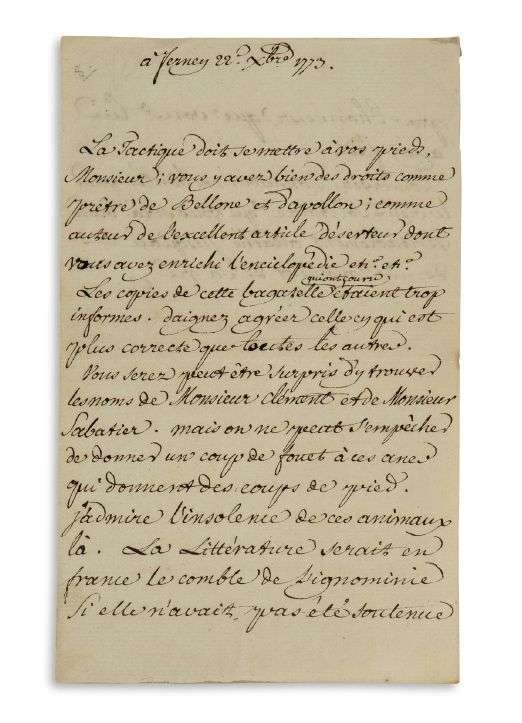 à ferney 22e. Xbre 1773.
La Tactique doit se mettre à vos pieds,
Monsieur; vous y avez bien des droits comme
prêtre de Bellone et d'apollon; comme
auteur de l'excellent article déserteur dont
vous avez enrichi l'enciclopédie etc. etc.
Les copies de cette bagatelle qui ont couru étaient trop
informes. daignez agréer celle cy qui est
plus correcte que toutes les autres.
Vous serez peut être surpris d'y trouver
les noms de Monsieur clément et de Monsieur
Sabatier. mais on ne peut s'empêcher
de donner un coup de fouet à ces anes
qui donnent des coups de pied.
j'admire l'insolence de ces animaux
là. La Littérature serait en
france le comble de l'ignominie
si elle n'avait pas été soutenue